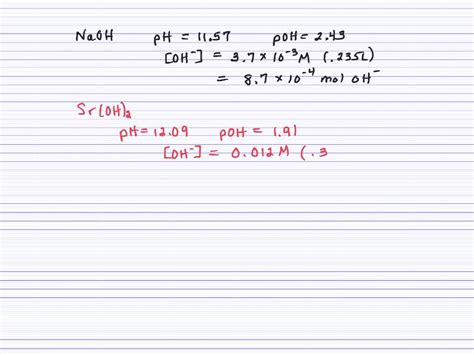 NaOH pH = 11.57 pOH = 2.43
[OH⁻] = 3.7 × 10⁻³ M (.235L)
= 8.7 × 10⁻⁴ mol OH⁻
Sr(OH)₂
pH = 12.09 pOH = 1.91
[OH⁻] = 0.012 M (.3